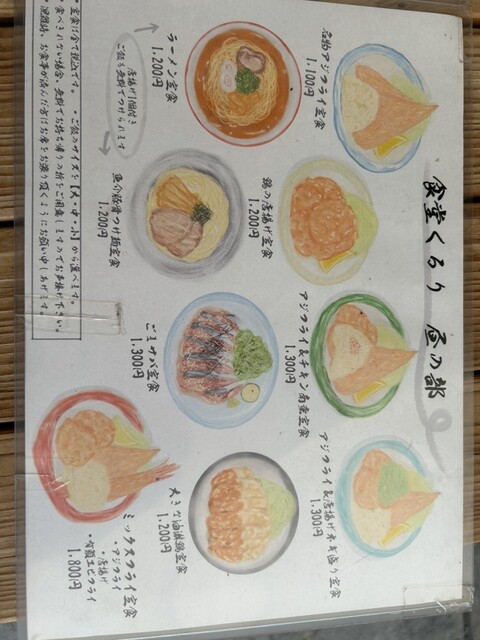 食堂くるり 昼の部
名物アジフライ定食
1.100円
鶏の唐揚げ定食
1.200円
アジフライ&チキン南蛮定食
1.300円
アジフライ&唐揚げ
定食
1.300円
ラーメン定食
1.200円
唐揚げ1個付き
ご飯も無料でつけられます
魚介豚骨つけ麺定食
1.200円
ごまサバ定食
1.300円
大きな油淋鶏定食
1.200円
ミックスフライ定食
・アジフライ
・唐揚げ
・有頭エビフライ
1.800円
・定食は全て税込です。
・ご飯のサイズを【大・中・小】から選べます。
・食べきれない場合、無料でお持ち帰りの折をご用意しますのでお声掛け下さい。
・混雑時、お食事が済んだ方はお席をお譲り頂くようにお願い申し上げます。